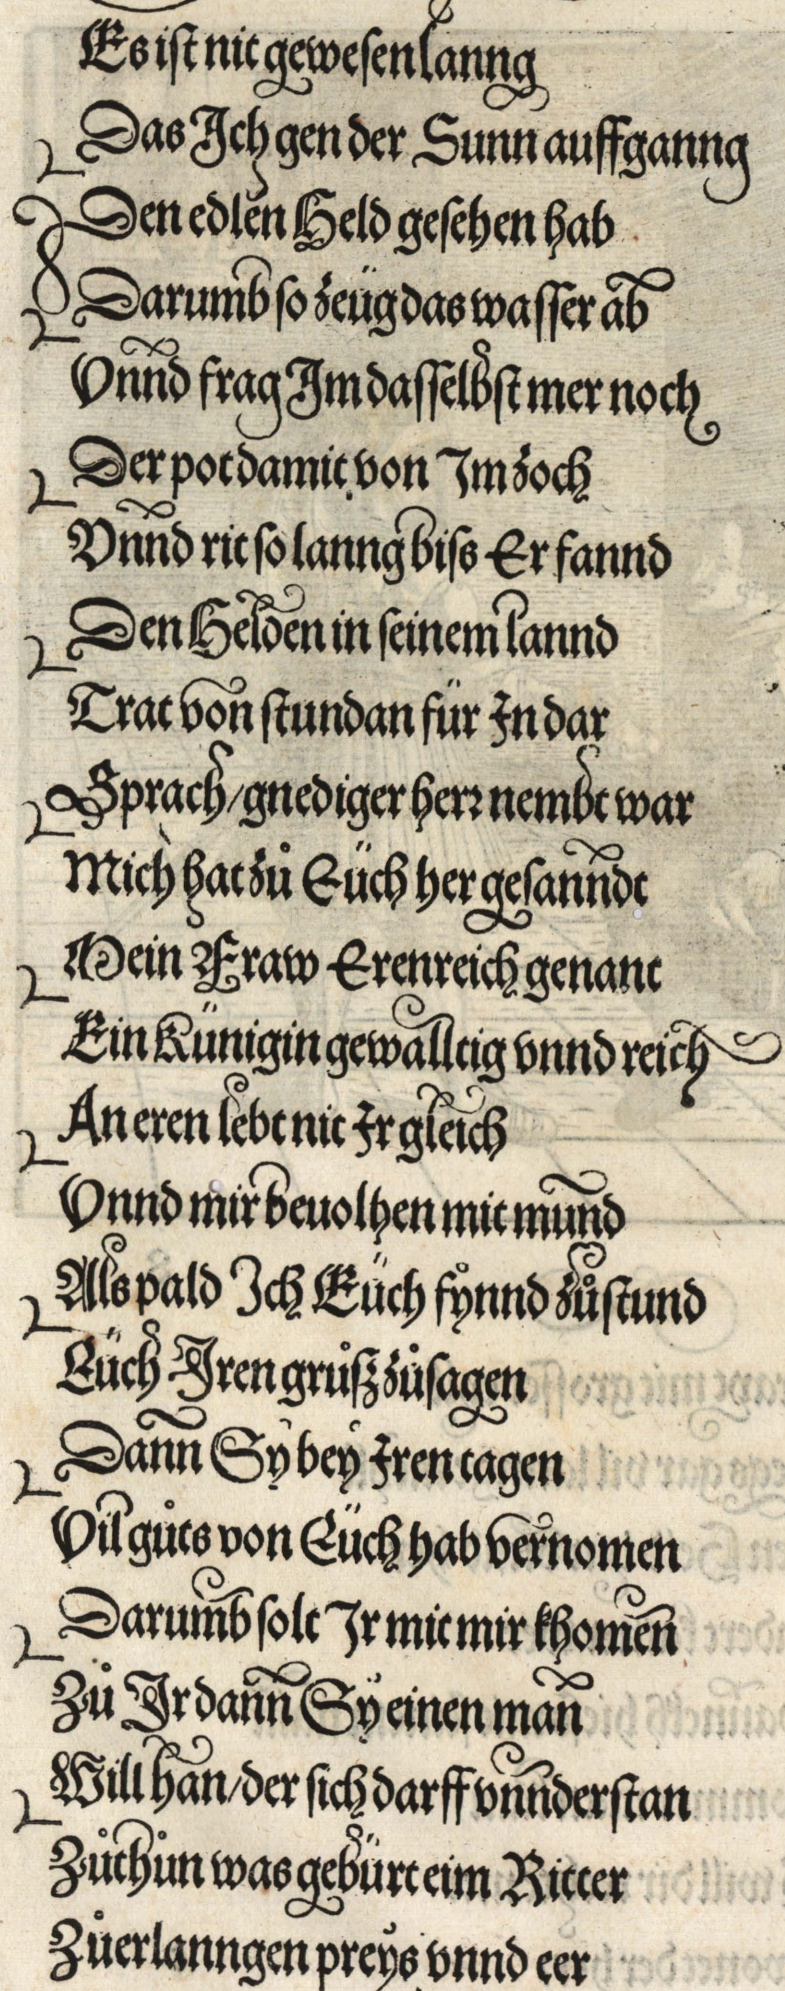 Es ist nit gewesen lanng
Das Ich gen der Sunn auffganng
Den edlen Held gesehen hab
Darumb so zeüg das wasser ab
Vnnd frag Im dasselbst mer noch
Der pot damit von Im zoch
Vnnd rit so lanng biss Er fannd
Den Helden in seinem lannd
Trat von stundan für In dar
Sprach/gnediger herr nembt war
Mich hat zů Eüch her gesanndt
Mein Fraw Erenreich genant
Ein Künigin gewalltig vnnd reich
An eren lebt nit Ir gleich
Vnnd mir beuolhen mit mund
Als pald Ich Eüch fynnd zůstund
Eüch Iren grůsz zůsagen
Dann Sy bey Iren tagen
Vil gůts von Eüch hab vernomen
Darumb solt Ir mit mir khomen
Zů Ir dann Sy einen man
Will han/der sich darff vnnderstan
Zůthůn was gebürt eim Ritter
Zůerlanngen preys vnnd eer